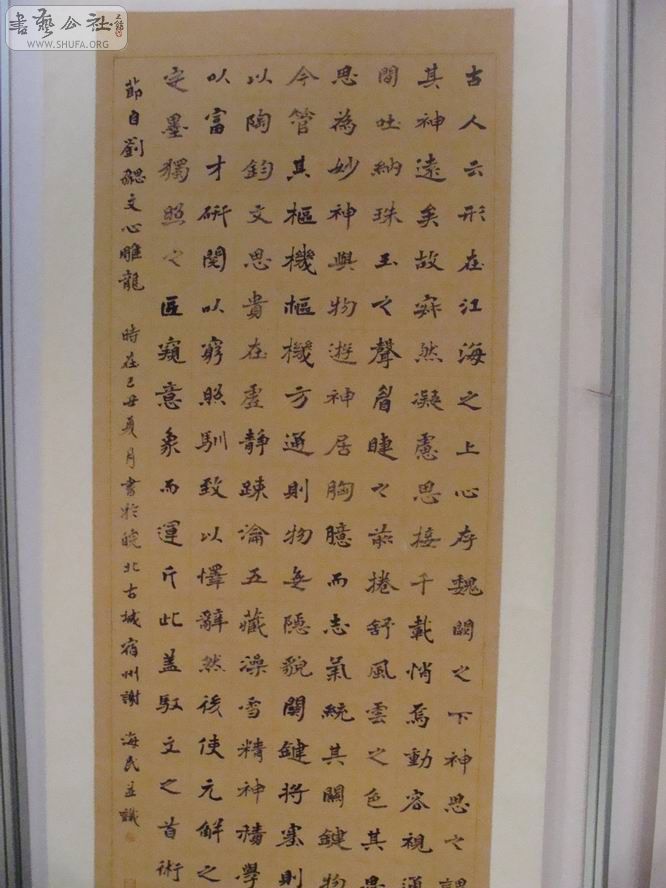 書藝公社
WWW.SHUFA.ORG
古人云形在江海之上心存魏闕之下神思之謂
其神遠矣故寂然凝慮思接千載悄焉動容視通
間吐納珠玉之聲眉睫之前捲舒風雲之色其思
思為妙神與物遊神居胸臆而志氣統其關鍵物
今管其樞機樞機方通則物無隱貌關鍵將塞則
以陶鈞文思貴在虛靜疎瀹五藏澡雪精神積學
以富才研閱以窮照馴致以懌辭然後使元解之
定墨獨照之匠窺意象而運斤此蓋馭文之首術
節自劉勰文心雕龍 時在己丑夏月書於皖北古城宿州謝海民並識